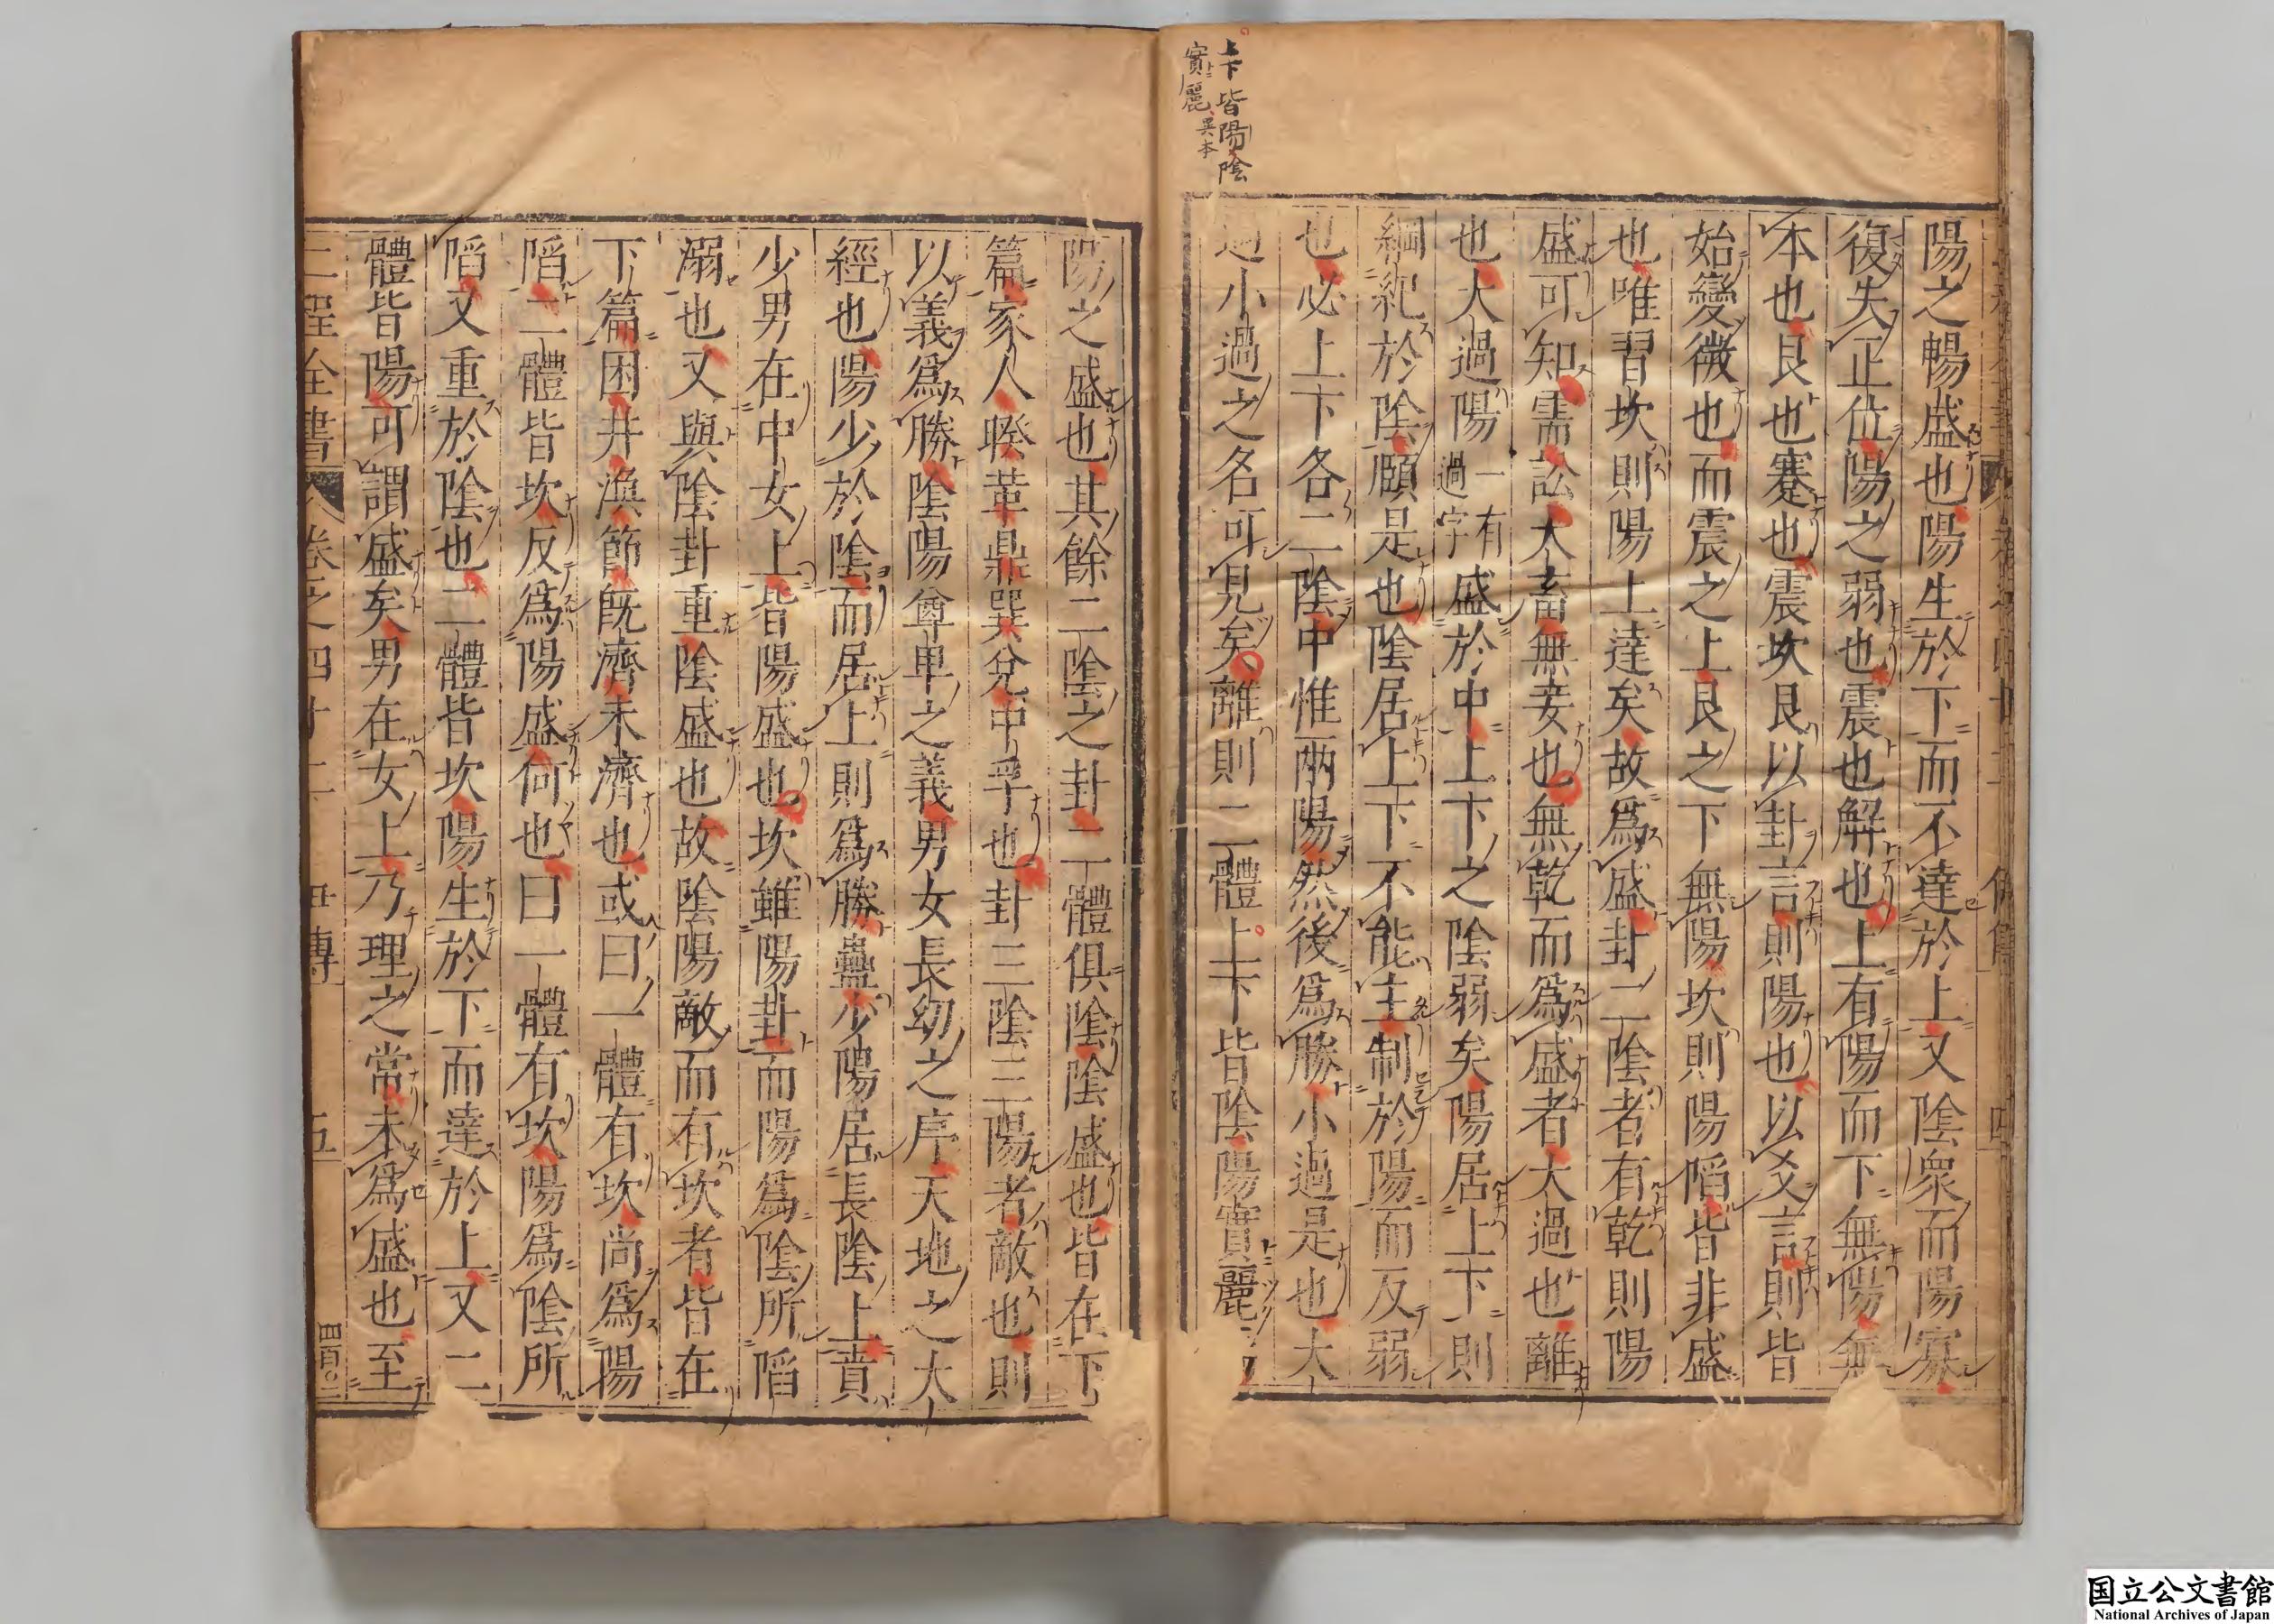 上下皆陽陰
實麗異本
陽之暢盛也陽生於下而不達於上又陰衆而陽寡
復失正位陽之弱也震也解也上有陽而下無陽無
本也艮也蹇也震坎艮以卦言則陽也以爻言則皆
始變微也而震之上艮之下無陽坎則陽陷皆非盛
也唯習坎則陽上達矣故爲盛卦二陰者有乾則陽
盛可知需訟大畜無妄也無乾而爲盛者大過也離
也大過陽一有過字盛於中上下之陰弱矣陽居上下則
綱紀於陰頤是也陰居上下不能主制於陽而反弱
也必上下各二陰中惟兩陽然後爲勝小過是也大
過小過之名可見矣離則二體上下皆陰陽實麗
陽之盛也其餘二陰之卦二體俱陰陰盛也皆在下
篇家人睽革鼎巽兌中孚也卦三陰三陽者敵也則
以義爲勝陰陽尊卑之義男女長幼之序天地之大
經也陽少於陰而居上則爲勝蠱少陽居長陰上賁
少男在中女上皆陽盛也坎雖陽卦而陽爲陰所陷
溺也又與陰卦重陰盛也故陰陽敵而有坎者皆在
下篇困井渙節旣濟未濟也或曰一體有坎尚爲陽
陷二體皆坎反爲陽盛何也曰一體有坎陽爲陰所
陷又重於陰也二體皆坎陽生於下而達於上又二
體皆陽可謂盛矣男在女上乃理之常未爲盛也至
二程全書 卷之四十二 伊傳 五
四百〇一
国立公文書館
National Archives of Japan